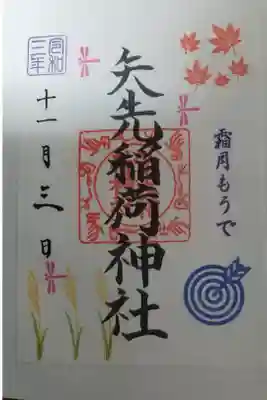 霜月もうで
矢先稲荷神社
令和
三年
十一月三日